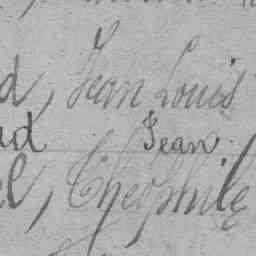 d, Jean Louis
ud Jean
el, Théophile